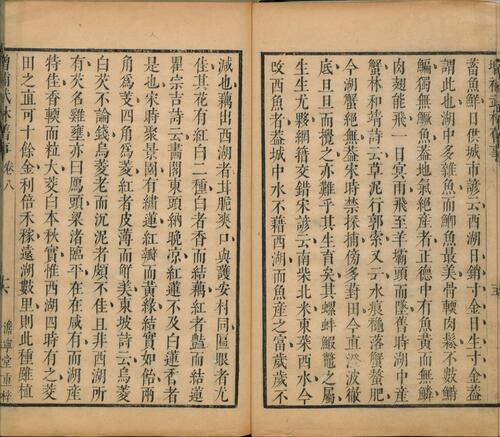 增補武林舊事
蓄魚鮮日供城市諺云西湖日銷寸金日生寸金蓋
謂此也湖中多雜魚而鯽魚最美骨軟肉鬆不數鯔
鯿獨無鱖魚蓋地氣絶産者正德中有魚黃而無鱗
肉翅能飛一日冥雨飛至羊壩頭而墜舊時湖中産
蟹林和靖詩云草泥行郭索又云水痕穐落蟹螯肥
今湖蟹絶無蓋宋時禁採捕傍多葑田今直澄波徹
底旦旦而攪之亦難乎其生育矣其螺蚌鰕鼈之屬
生生尤夥網籪交錯宋諺云南柴北米東菜西水今
攺西魚者蓋城中水不藉西湖而魚産之富歲歲不
減也藕出西湖者甘脆爽口與護安村同匾眼者尤
佳其花有紅白二種白者香而結藕紅者豔而結蓮
瞿宗吉詩云畵閣東頭納晚凉紅蓮不及白蓮香者
是也宋時聚景園有繡蓮紅瓣而黃緑結實如飴兩
角爲芰四角爲菱紅者皮薄而鮮美東坡詩云烏菱
白芡不論錢烏菱老而沉泥者頗不佳且非西湖所
有芡名雞壅亦曰鴈頭梟渚臨平在在咸有而湖産
特佳香輭而粒大茭白本秋實惟西湖四時有之茭
田之直可十餘金利倍禾稼遠湖數里則此種雖植
增補武林舊事
卷八
六
澹寧堂重梓